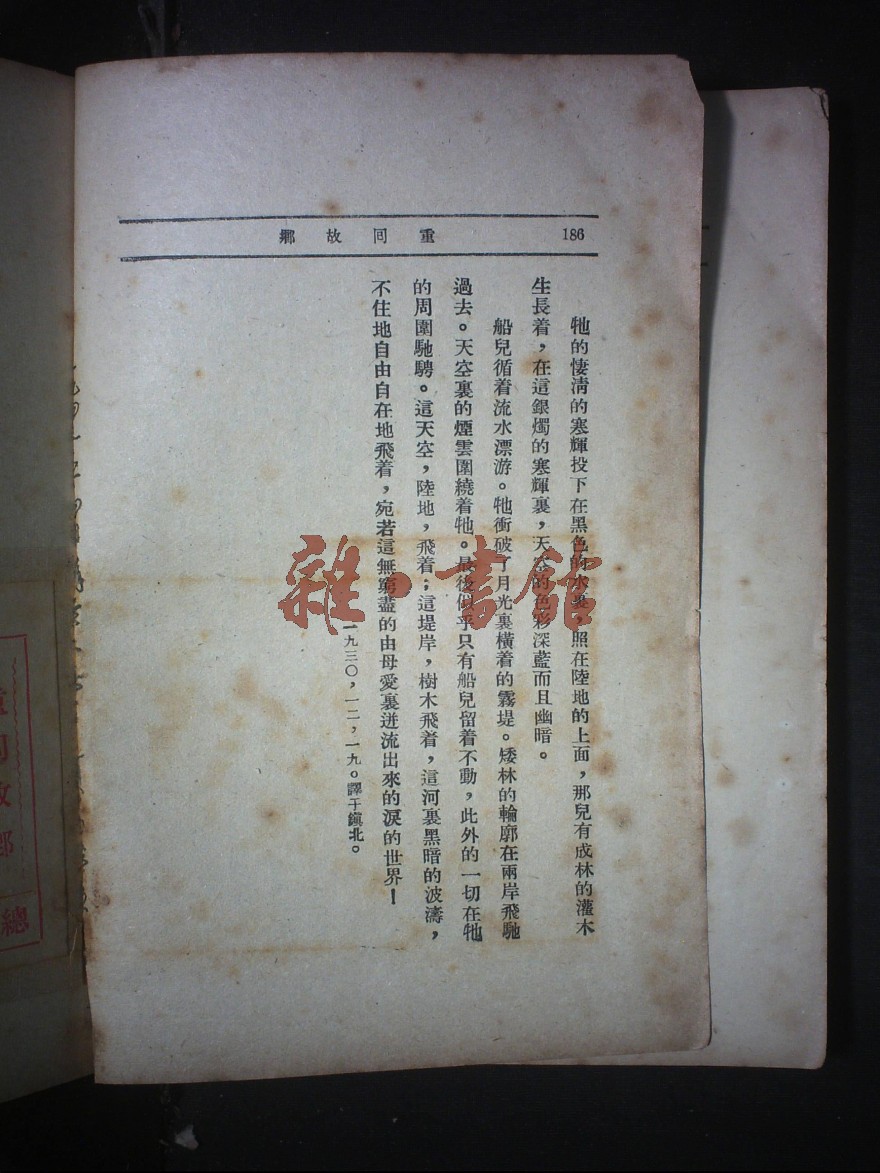 186
重回故鄉
牠的悽淸的寒輝投下在黑色的水裏，照在陸地的上面，那兒有成林的灌木
生長着，在這銀燭的寒輝裏，天空的色彩深藍而且幽暗。
船兒循着流水漂游。牠衝破了月光裏橫着的霧堤。矮林的輪廓在兩岸飛馳
過去。天空裏的煙雲圍繞着牠。最後似乎只有船兒留着不動，此外的一切在牠
的周圍馳騁。這天空，陸地，飛着；這堤岸，樹木飛着，這河裏黑暗的波濤，
不住地自由自在地飛着，宛若這無窮盡的由母愛裏迸流出來的淚的世界！
一九三〇，一二，一九。譯于鎮北。
雜·書館
故鄉
總